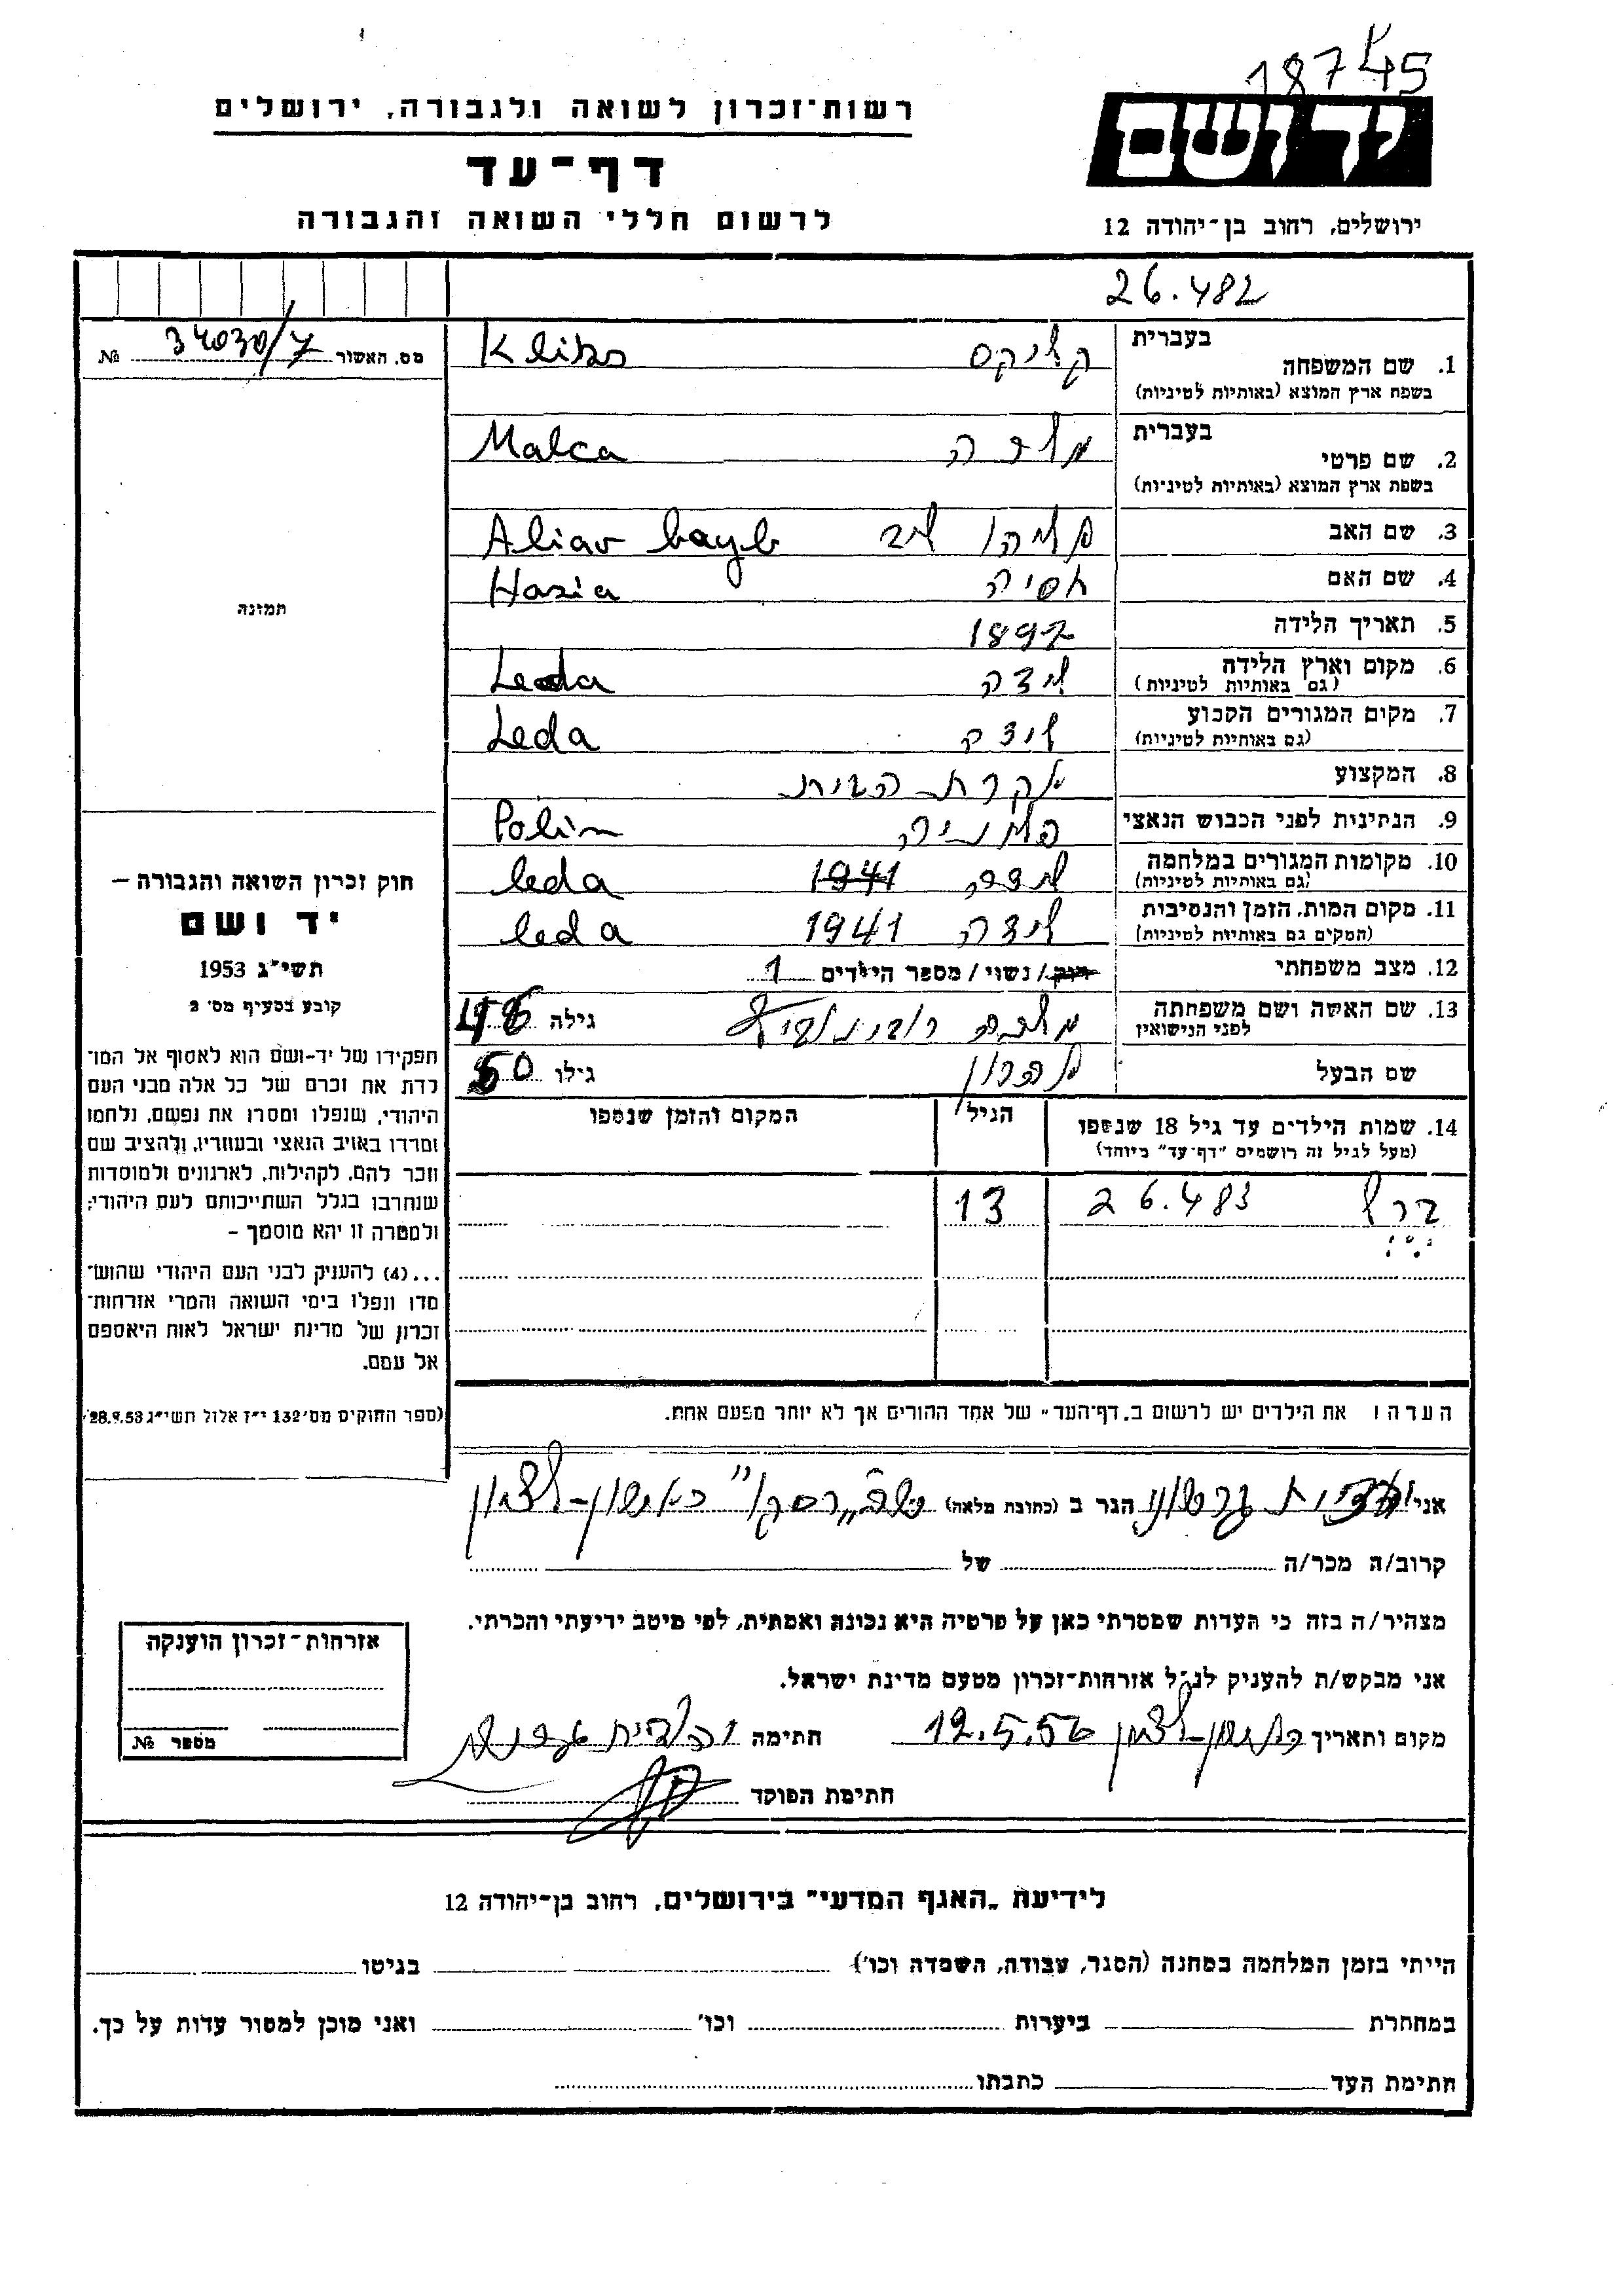 18745
רשות־זכרון לשואה ולגבורה, ירושלים
דף־עד
לרשום חללי השואה והגבורה
יד ושם
ירושלים, רחוב בן־יהודה 12
26.482
מס. האשור 34030/7 №
בעברית
1. שם המשפחה קליקס Kliks
בשפת ארץ המוצא (באותיות לטיניות)
בעברית
2. שם פרטי מלכה Malca
בשפת ארץ המוצא (באותיות לטיניות)
3. שם האב אליהו ליב Aliav bayb
4. שם האם חסיה Hasia
5. תאריך הלידה 1897
6. מקום וארץ הלידה לידה Leda
(גם באותיות לטיניות)
7. מקום המגורים הקבוע לידה Leda
(גם באותיות לטיניות)
8. המקצוע עקרת הבית
9. הנתינות לפני הכבוש הנאצי פולניה Polin
10. מקומות המגורים במלחמה לידה 1941 leda
(גם באותיות לטיניות)
11. מקום המות, הזמן והנסיבות לידה 1941 leda
(המקום גם באותיות לטיניות)
12. מצב משפחתי רוק / נשוי / מספר הילדים 1
13. שם האשה ושם משפחתה מלכה רבינוביץ גילה 48
לפני הנישואין
שם הבעל אהרון גילו 50
14. שמות הילדים עד גיל 18 שנספו הגיל המקום והזמן שנספו
(מעל לגיל זה רושמים "דף־עד" מיוחד)
ברל 26.483 13
הערה: את הילדים יש לרשום ב„דף־העד" של אחד ההורים אך לא יותר מפעם אחת.
אני הגר ב (כתובת מלאה) ראשון-לציון
קרוב/ה מכר/ה של
מצהיר/ה בזה כי העדות שמסרתי כאן על פרטיה היא נכונה ואמתית, לפי מיטב ידיעתי והכרתי.
אני מבקש/ת להעניק לנ"ל אזרחות־זכרון מטעם מדינת ישראל.
מקום ותאריך ראשון-לציון 12.5.56 חתימה
חתימת הפוקד
תמונה
חוק זכרון השואה והגבורה –
יד ושם
תשי"ג 1953
קובע בסעיף מס' 2
תפקידו של יד-ושם הוא לאסוף אל המו־
לדת את זכרם של כל אלה מבני העם
היהודי, שנפלו ומסרו את נפשם, נלחמו
ומרדו באויב הנאצי ובעוזריו, ולהציב שם
וזכר להם, לקהילות, לארגונים ולמוסדות
שנחרבו בגלל השתייכותם לעם היהודי;
ולמטרה זו יהא מוסמך –
...(4) להעניק לבני העם היהודי שהוש־
מדו ונפלו בימי השואה והמרי אזרחות־
זכרון של מדינת ישראל לאות היאספם
אל עמם.
(ספר החוקים מס' 132 י"ז אלול תשי"ג 28.9.53)
אזרחות־זכרון הוענקה
מספר №
לידיעת „האגף המדעי" בירושלים, רחוב בן־יהודה 12
הייתי בזמן המלחמה במחנה (הסגר, עבודה, השמדה וכו') בגיטו
במחתרת ביערות וכו' ואני מוכן למסור עדות על כך.
חתימת העד כתבתו